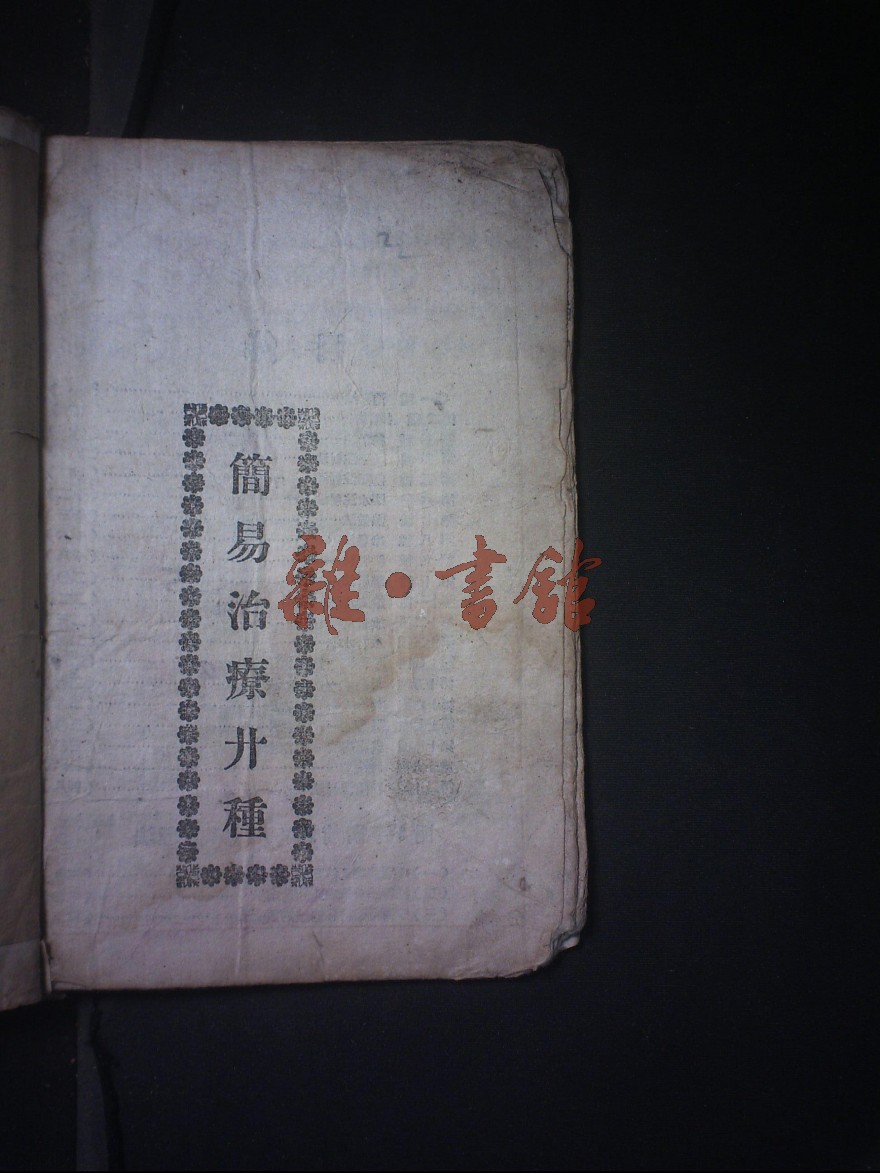 簡易治療廾種
雜·書館
2